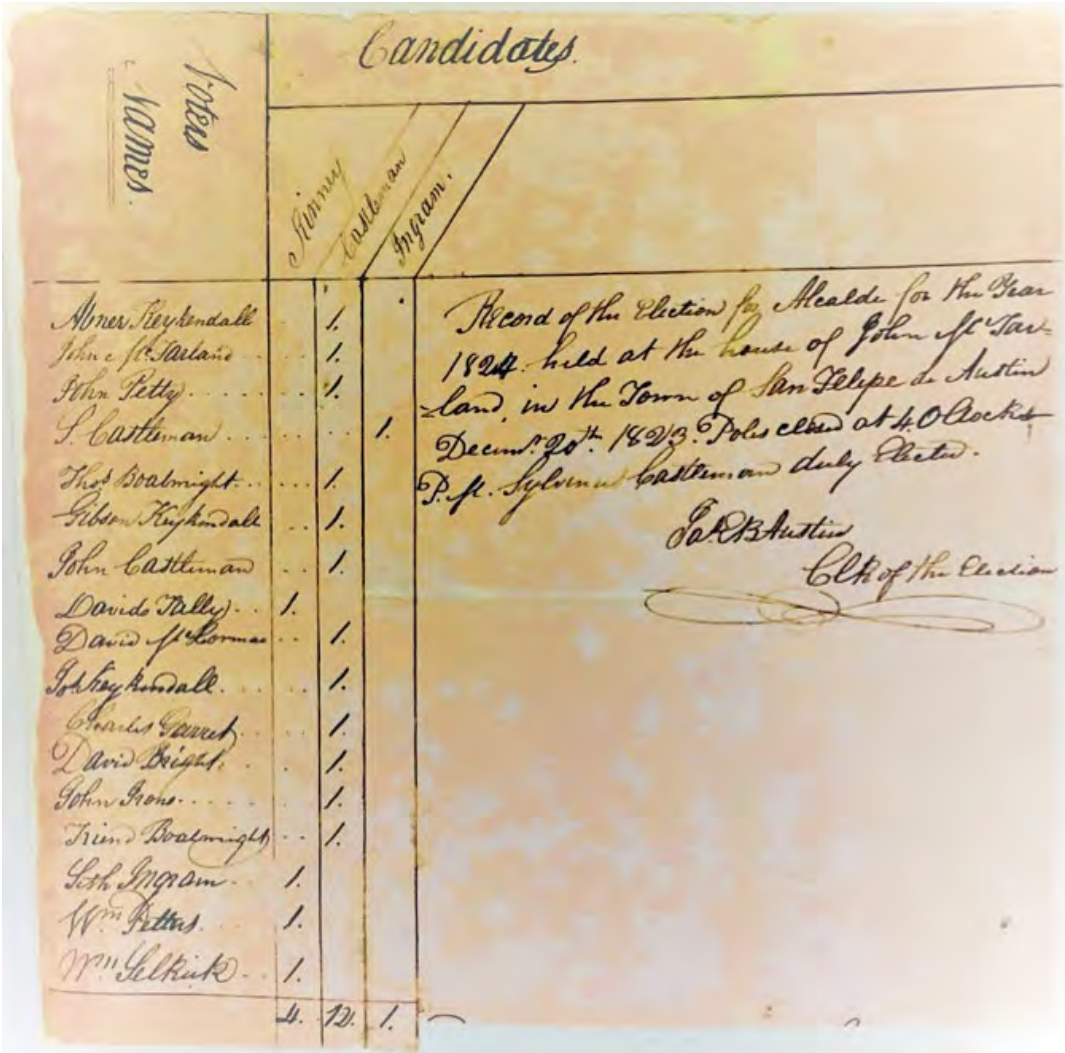 Candidates.
Voters
Names.
Kinney
Castleman
Ingram.
Abner Keykendall . 1.
John c McFarland . . . 1.
John Petty. . . . . . . . 1.
S. Castleman . . . . . . . . 1.
Thos Boatwright. . . . . . 1.
Gibson Keykendall . . 1.
John Castleman . . 1.
Davids Tally. . 1.
David McCormac . . 1.
Jos Keykendall . . . . . 1.
Charles Garret. . . 1.
David Bright. . 1.
John Irons. . . . . . 1.
Friend Boatwright . . 1.
Seth Ingram. . 1.
Wm. Pettus. . . 1.
Wm Selkirk. . 1.
4. 12. 1.
Record of the Election for Alcalde for the Year
1824. held at the house of John McFar=
=land, in the Town of San Felipe de Austin
Decemr. 20th. 1823. Poles closed at 4. O Clock
P. M. Sylvenus Castleman duly Elected.
Jas. E B Austin
Clk of the Election